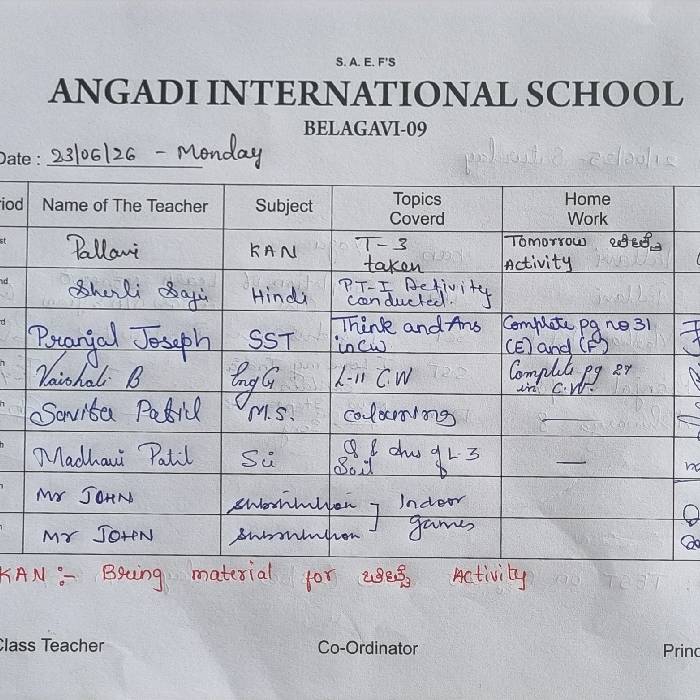 S. A. E. F'S
ANGADI INTERNATIONAL SCHOOL
BELAGAVI-09
Date : 23/06/26 - Monday
iod Name of The Teacher Subject Topics Coverd Home Work
st Pallavi KAN T-3 taken Tomorrow Activity
nd Sherli Saji Hindi PT-I Activity conducted.
rd Pranjal Joseph SST Think and Ans in CW Complete pg no 31 (E) and (F)
h Vaishali B Eng G L-11 C.W Complete pg 27 in C.W.
h Savita Patil M.S. colouring —
h Madhavi Patil Sci Q & Ans of L-3 Soil —
Mr JOHN substitution Indoor games
Mr JOHN substitution
KAN :- Bring material for Activity
Class Teacher Co-Ordinator Princ